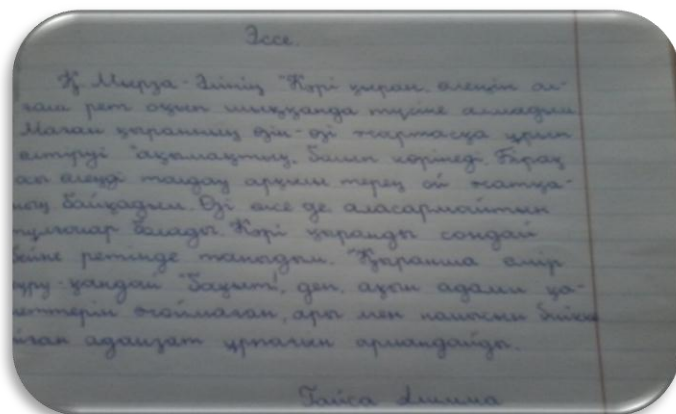 Эссе.
Қ. Мырза-Әлінің "Кәрі қыран" өлеңін ал-
ғаш рет оқып шыққанда түсіне алмадым.
Маған қыранның өзін-өзі жартасқа ұрып
өлтіруі "ақымақтық" болып көрінеді. Бірақ
осы өлеңді талдау арқылы терең ой жатқа-
нын байқадым. Өзі өлсе де аласармайтын
тұлғалар болады. Кәрі қыранды сондай
бейне ретінде таныдым. "Қыранша өмір
сүру қандай бақыт!" деп, ақын адами қа-
сиеттерін жоймаған, ары мен намысын биік
қойған адамзат ұрпағын армандайды.
Ғайса Алина